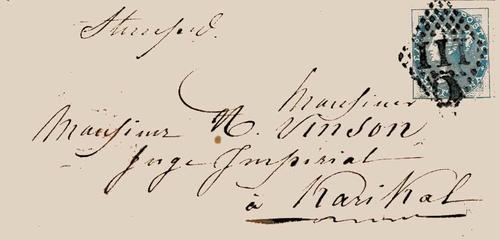 Stamped.
Monsieur
Monsieur N. Vinson
Juge Impérial
à Karikal